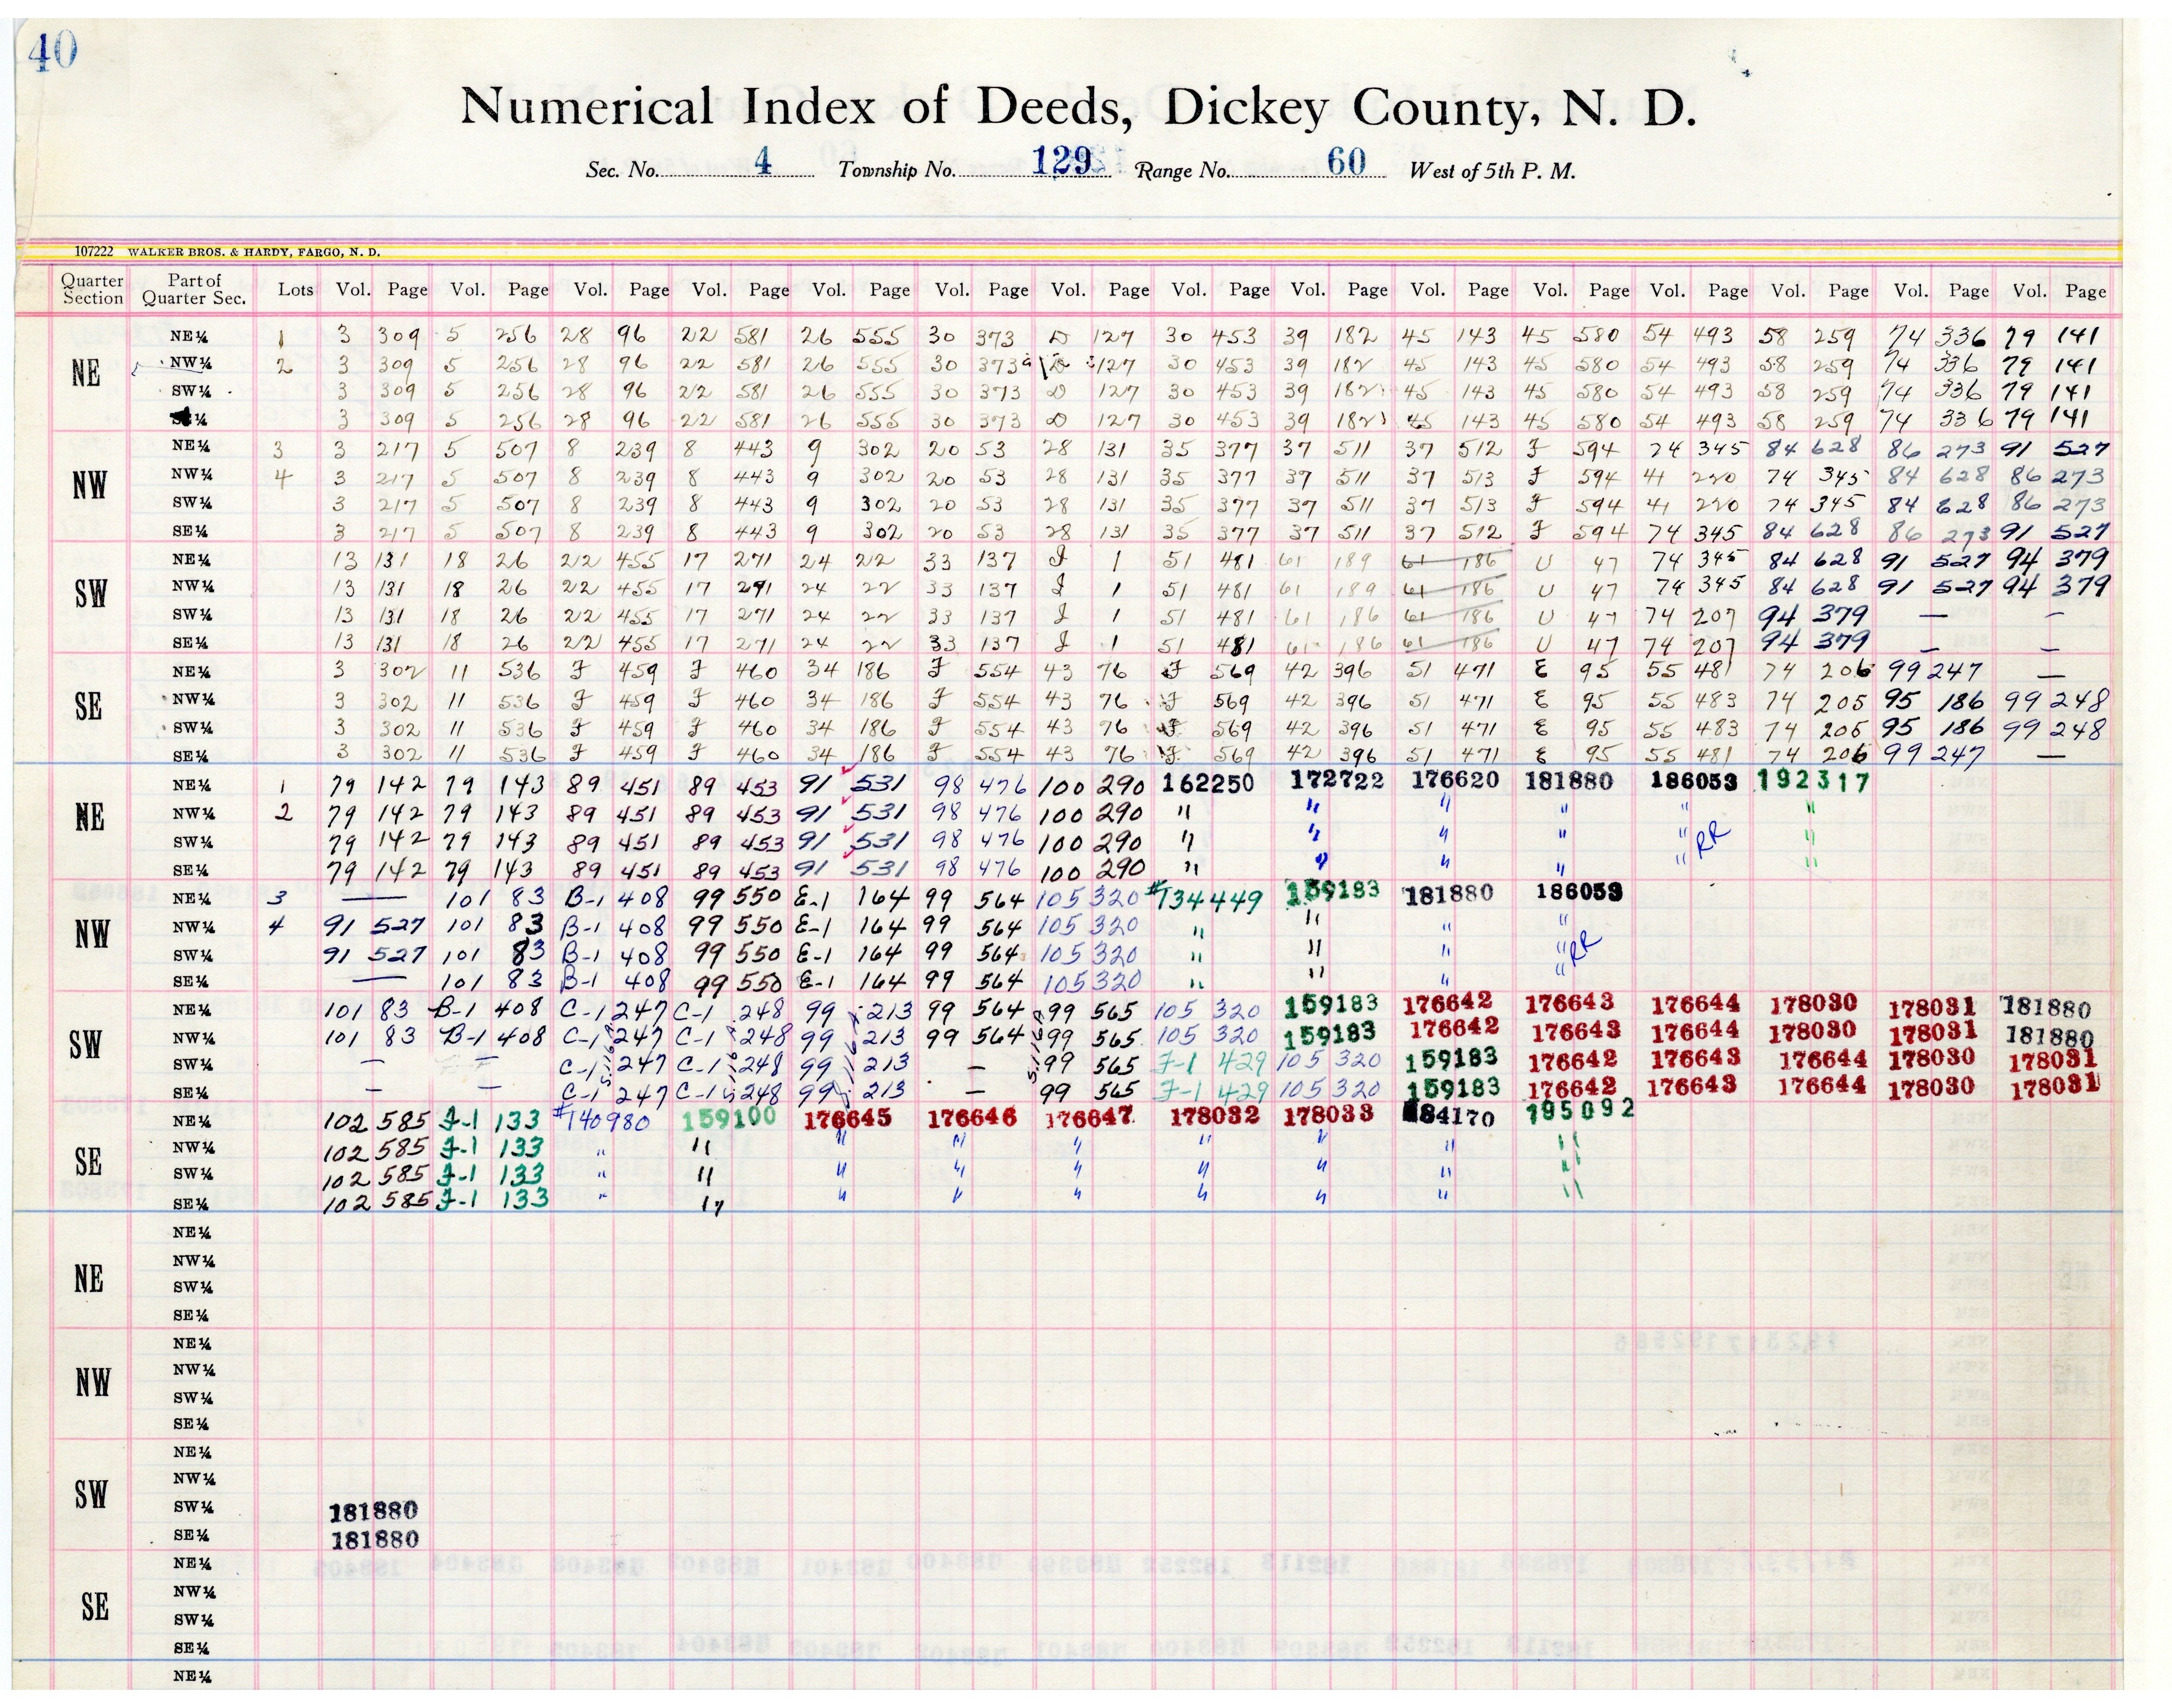 40
Numerical Index of Deeds, Dickey County, N. D.
Sec. No. 4 Township No. 129 Range No. 60 West of 5th P. M.
107222 WALKER BROS. & HARDY, FARGO, N. D.
Quarter Section Part of Quarter Sec. Lots Vol. Page Vol. Page Vol. Page Vol. Page Vol. Page Vol. Page Vol. Page Vol. Page Vol. Page Vol. Page Vol. Page Vol. Page Vol. Page Vol. Page Vol. Page
NE
NE¼ 1 3 309 5 256 28 96 22 581 26 555 30 373 D 127 30 453 39 182 45 143 45 580 54 493 58 259 74 336 79 141
NW¼ 2 3 309 5 256 28 96 22 581 26 555 30 373 D 127 30 453 39 182 45 143 45 580 54 493 58 259 74 336 79 141
SW¼ 3 309 5 256 28 96 22 581 26 555 30 373 D 127 30 453 39 182 45 143 45 580 54 493 58 259 74 336 79 141
SE¼ 3 309 5 256 28 96 22 581 26 555 30 373 D 127 30 453 39 182 45 143 45 580 54 493 58 259 74 336 79 141
NW
NE¼ 3 3 217 5 507 8 239 8 443 9 302 20 53 28 131 35 377 37 511 37 512 F 594 74 345 84 628 86 273 91 527
NW¼ 4 3 217 5 507 8 239 8 443 9 302 20 53 28 131 35 377 37 511 37 513 F 594 41 220 74 345 84 628 86 273
SW¼ 3 217 5 507 8 239 8 443 9 302 20 53 28 131 35 377 37 511 37 513 F 594 41 220 74 345 84 628 86 273
SE¼ 3 217 5 507 8 239 8 443 9 302 20 53 28 131 35 377 37 511 37 512 F 594 74 345 84 628 86 273 91 527
SW
NE¼ 13 131 18 26 22 455 17 271 24 22 33 137 I 1 51 481 61 189 61 186 U 47 74 345 84 628 91 527 94 379
NW¼ 13 131 18 26 22 455 17 271 24 22 33 137 I 1 51 481 61 189 61 186 U 47 74 345 84 628 91 527 94 379
SW¼ 13 131 18 26 22 455 17 271 24 22 33 137 I 1 51 481 61 186 61 186 U 47 74 207 94 379 — —
SE¼ 13 131 18 26 22 455 17 271 24 22 33 137 I 1 51 481 61 186 61 186 U 47 74 207 94 379 — —
SE
NE¼ 3 302 11 536 F 459 F 460 34 186 F 554 43 76 F 569 42 396 51 471 E 95 55 481 74 206 99 247 —
NW¼ 3 302 11 536 F 459 F 460 34 186 F 554 43 76 F 569 42 396 51 471 E 95 55 483 74 205 95 186 99 248
SW¼ 3 302 11 536 F 459 F 460 34 186 F 554 43 76 F 569 42 396 51 471 E 95 55 483 74 205 95 186 99 248
SE¼ 3 302 11 536 F 459 F 460 34 186 F 554 43 76 F 569 42 396 51 471 E 95 55 481 74 206 99 247 —
NE
NE¼ 1 79 142 79 143 89 451 89 453 91 531 98 476 100 290 162250 172722 176620 181880 186053 192317
NW¼ 2 79 142 79 143 89 451 89 453 91 531 98 476 100 290 " " " " " "
SW¼ 79 142 79 143 89 451 89 453 91 531 98 476 100 290 " " " " " RR "
SE¼ 79 142 79 143 89 451 89 453 91 531 98 476 100 290 " " " " " "
NW
NE¼ 3 — 101 83 B-1 408 99 550 E-1 164 99 564 105 320 #134449 159183 181880 186053
NW¼ 4 91 527 101 83 B-1 408 99 550 E-1 164 99 564 105 320 " " " "
SW¼ 91 527 101 83 B-1 408 99 550 E-1 164 99 564 105 320 " " " " RR
SE¼ — 101 83 B-1 408 99 550 E-1 164 99 564 105 320 " " " "
SW
NE¼ 101 83 B-1 408 C-1 247 C-1 248 99 213 99 564 99 565 105 320 159183 176642 176643 176644 178030 178031 181880
NW¼ 101 83 B-1 408 C-1 247 C-1 248 99 213 99 564 99 565 105 320 159183 176642 176643 176644 178030 178031 181880
SW¼ — — C-1 247 C-1 248 99 213 — 99 565 F-1 429 105 320 159183 176642 176643 176644 178030 178031
SE¼ — — C-1 247 C-1 248 99 213 — 99 565 F-1 429 105 320 159183 176642 176643 176644 178030 178031
SE
NE¼ 102 585 F-1 133 #140980 159100 176645 176646 176647 178032 178033 184170 195092
NW¼ 102 585 F-1 133 " " " " " " " " "
SW¼ 102 585 F-1 133 " " " " " " " " "
SE¼ 102 585 F-1 133 " " " " " " " " "
NE
NE¼
NW¼
SW¼
SE¼
NW
NE¼
NW¼
SW¼
SE¼
SW
NE¼
NW¼
SW¼ 181880
SE¼ 181880
SE
NE¼
NW¼
SW¼
SE¼
NE¼